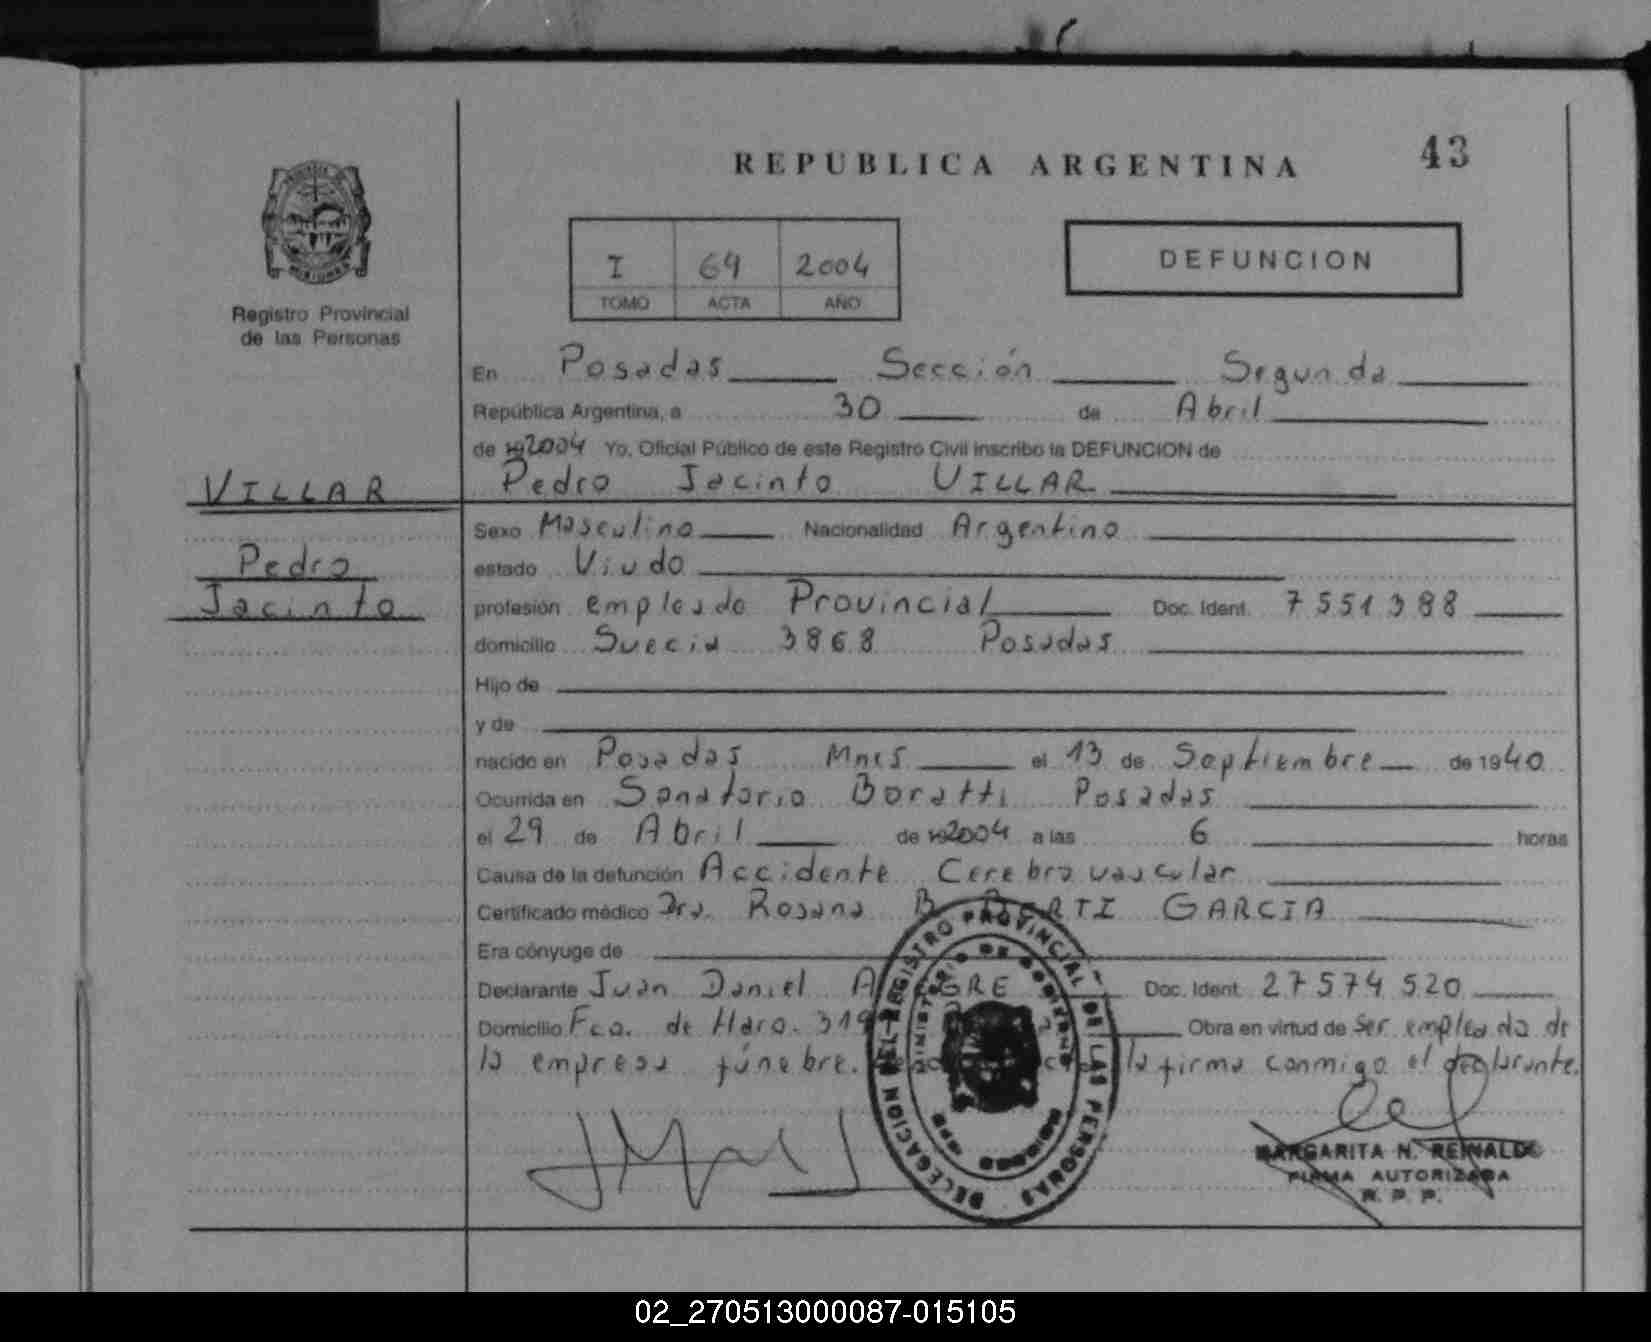 REPUBLICA ARGENTINA 43
Registro Provincial
de las Personas
I 64 2004
TOMO ACTA AÑO
DEFUNCION
En Posadas Sección Segunda
República Argentina, a 30 de Abril
de 192004 Yo, Oficial Público de este Registro Civil inscribo la DEFUNCION de
VILLAR
Pedro
Jacinto
Pedro Jacinto VILLAR
Sexo Masculino Nacionalidad Argentino
estado Viudo
profesión empleado Provincial Doc. Ident. 7551388
domicilio Suecia 3868 Posadas
Hijo de
y de
nacido en Posadas Mnes el 13 de Septiembre de 1940
Ocurrida en Sanatorio Boratti Posadas
el 29 de Abril de 192004 a las 6 horas
Causa de la defunción Accidente Cerebro vascular
Certificado médico Dra. Rosana B. BERTI GARCIA
Era cónyuge de
Declarante Juan Daniel Doc. Ident. 27574520
Domicilio Fco. de Haro. Obra en virtud de Ser empleado de
la empresa fúnebre. la firma conmigo el declarante.
DELEGACION DEL REGISTRO PROVINCIAL DE LAS PERSONAS
MINISTERIO DE GOBIERNO
MARGARITA N. REINALDO
FIRMA AUTORIZADA
R. P. P.
02_270513000087-015105